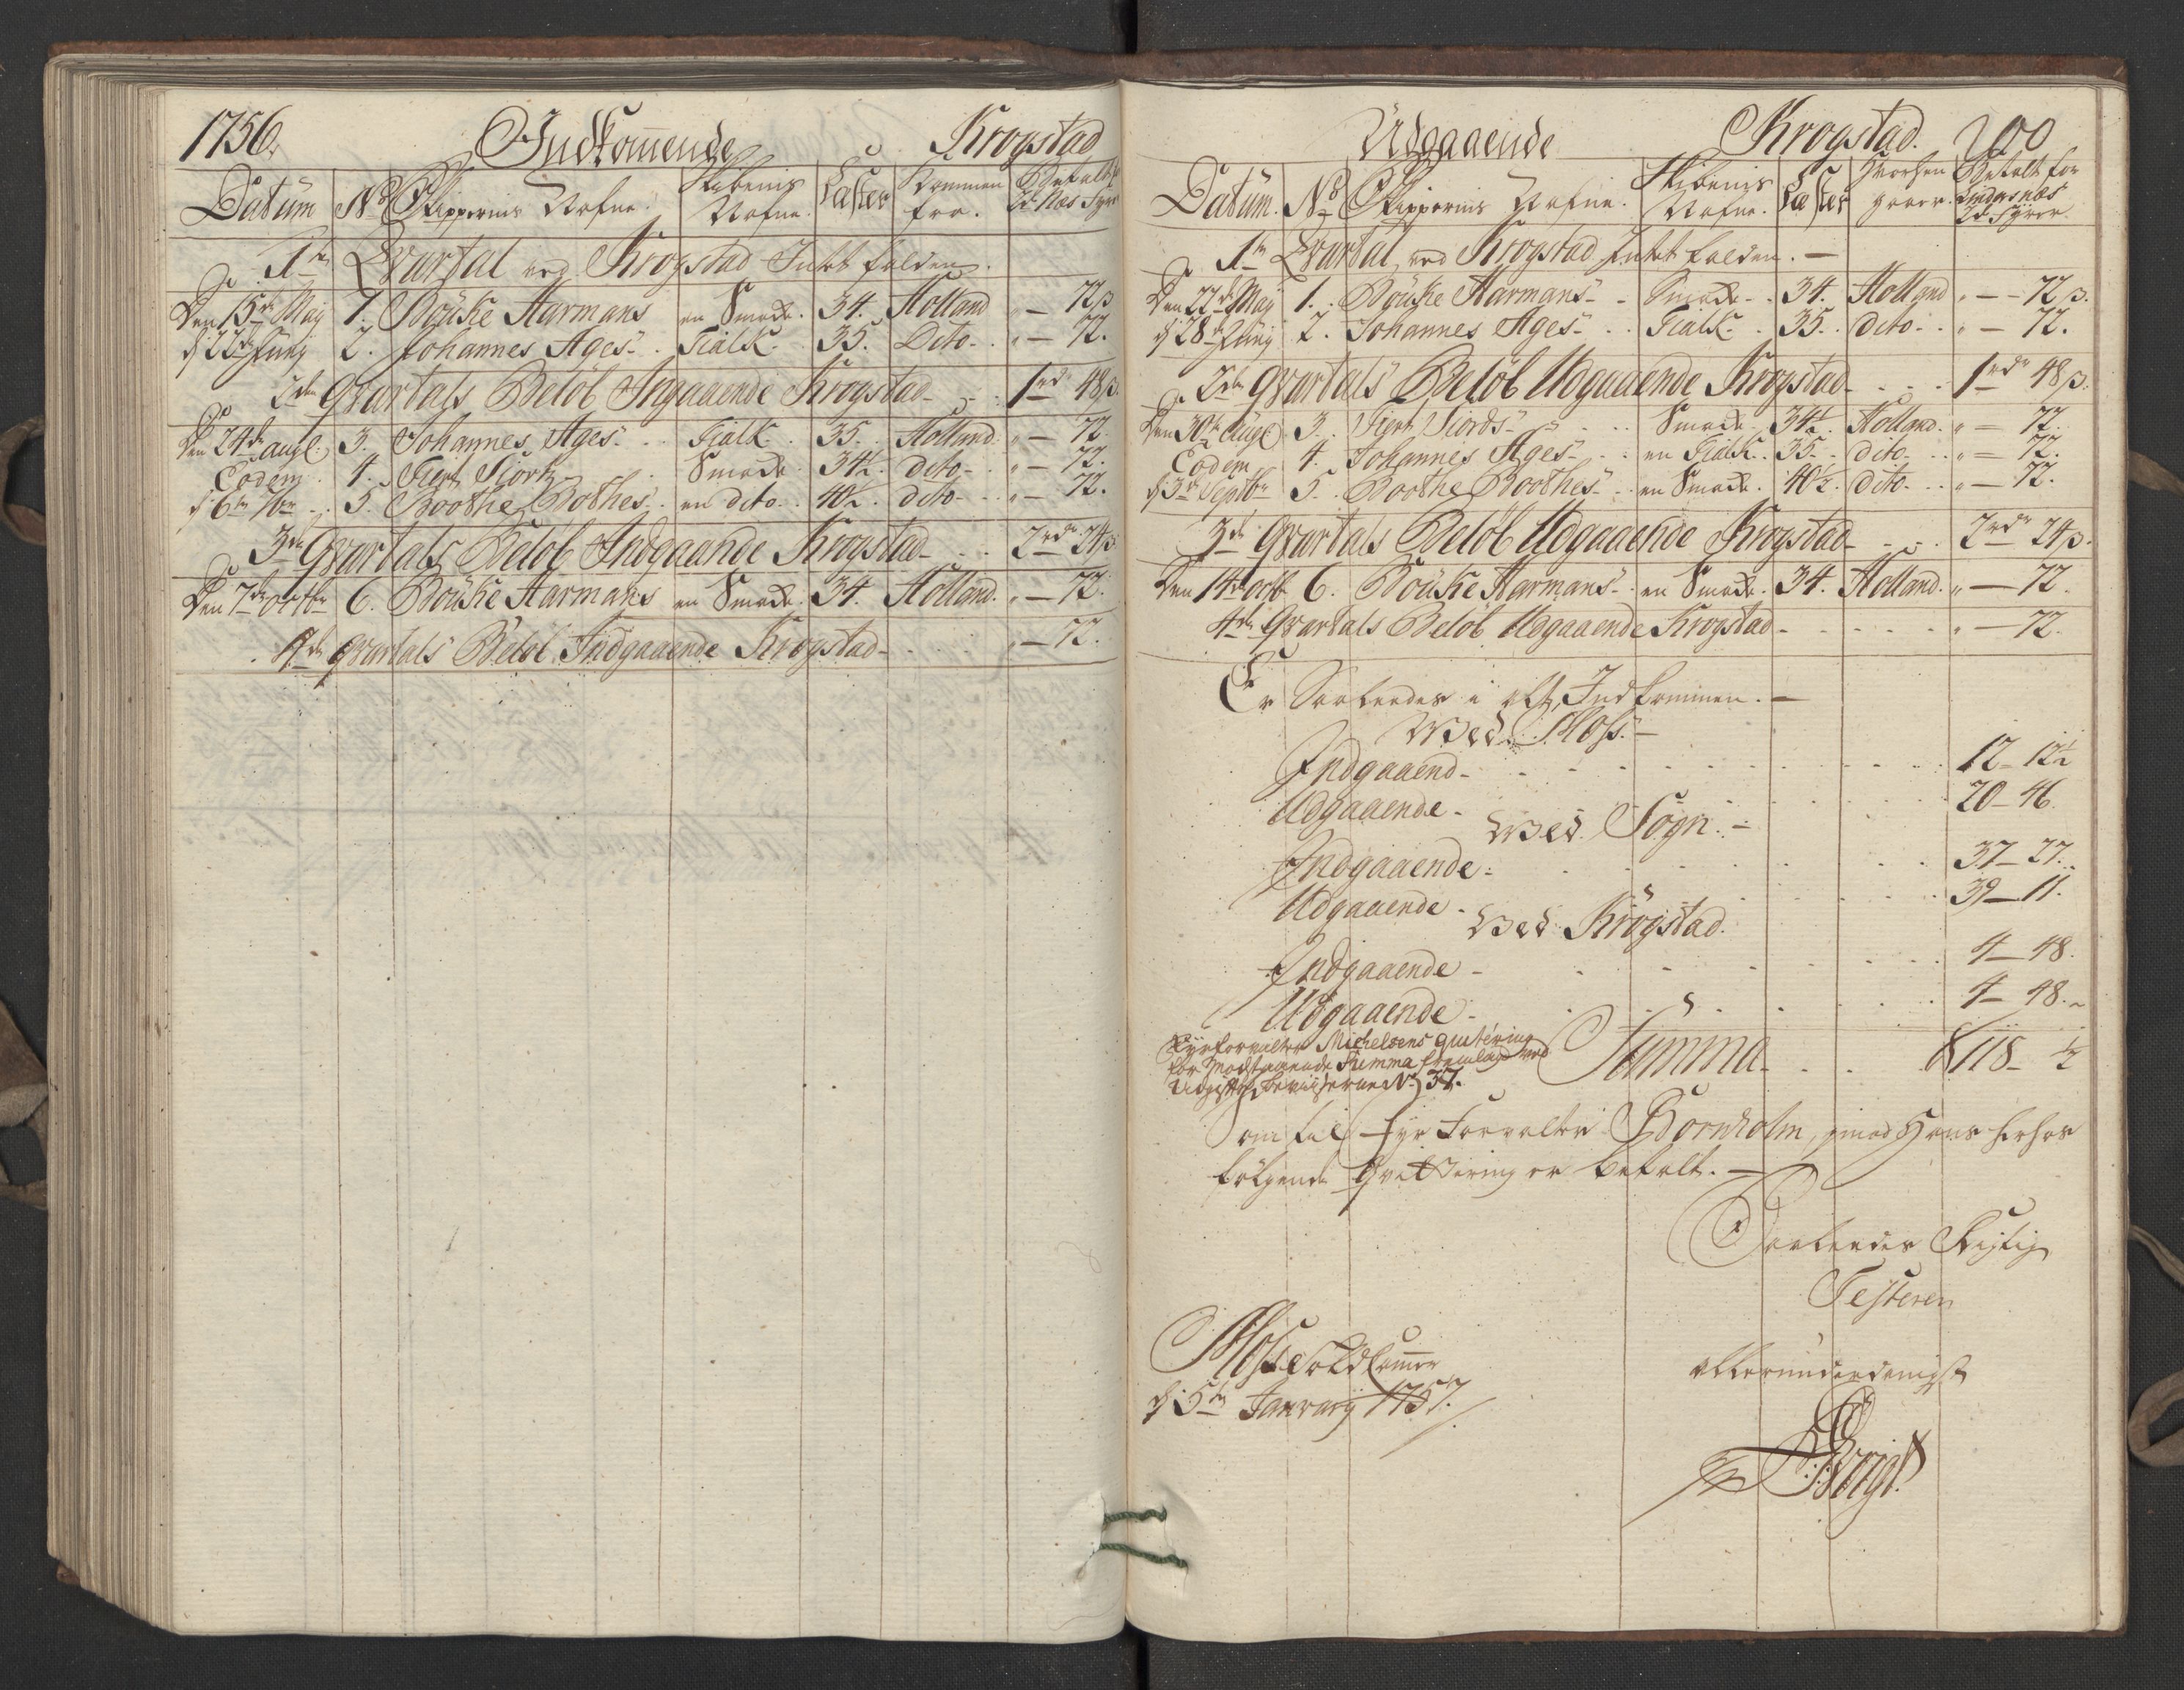 1756. Indkommende Krogstad
Datum No Skippernis Nafne. Skibenis Nafne. Læster Kommen fra. Betalt
1te Qvartal ved Krogstad Intet falden.
Den 15de May 1. Bouke Harmans en Smack. 34. Holland „ — 72 β
d 22de Junij 2. Johannes Ages Tialk. 35. Dito „ — 72.
2den Qvartals Beløb Ingaaende Krogstad 1rdr 48 β.
Den 24de augt. 3. Johannes Ages Tialk. 35. Holland. „ — 72.
Eodem 4. Tiert Siors Smack. 34½. dito „ — 72.
d 6te 7br 5. Boothe Bothes en dito 40½. dito „ — 72.
3de Qvartals Beløb Indgaaende Krogstad 2rdr 24 β
Den 7de octbr 6. Bouke Harmans en Smack. 34. Holland. „ — 72.
4de qvartals Beløb Indgaaende Krogstad „ — 72.
Udgaaende Krogstad. 200
Datum. No Skippernis Nafne. Skibenis Nafne. Læster Hvorhen gaaer. Betalt for Lindesnes 2de Fyrer.
1te Qvartal ved Krogstad Intet falden. —
Den 22de May 1. Bouke Harmans Smack 34. Holland „ — 72 β.
d 28de Junij 2. Johannes Ages Tialk 35. dito „ — 72.
2den Qvartals Beløb Udgaaende Krogstad 1rdr 48 β.
Den 30te Augt. 3. Tiert Siords Smack 34½. Holland. „ — 72.
Eodem 4. Johannes Ages en Tialk. 35. dito „ — 72.
d 3de Septbr 5. Boothe Boothes en Smack. 40½. dito „ — 72.
3de Qvartals Beløb Udgaaende Krogstad 2rdr 24 β.
Den 14de octbr 6. Bouke Harmans en Smack. 34. Holland. „ — 72.
4de Qvartals Beløb Udgaaende Krogstad „ — 72.
Er Saaledes i alt, Indkommen. —
Wed Moss. —
Indgaaend 12 – 12½
Udgaaende 20 – 46.
Wed Sogn. —
Indgaaende 37 – 27.
Udgaaende 39 – 11.
Wed Krogstad.
Indgaaende 4 – 48.
Udgaaende 4 – 48.
Summa 118 – ½
Fyrforvalter Michelsens qvitering
for Modstaaende Summa fremlagt med
Udgifts Beviiserne No 37.
om til Fyr Forvalter Bornholm, imod Hans herhos
følgende Qvittering er betalt. —
Saaledes Rigtig
Testerer
allerunderdanigst
Moss Toldkammer
d. 5te January 1757.
Woigt